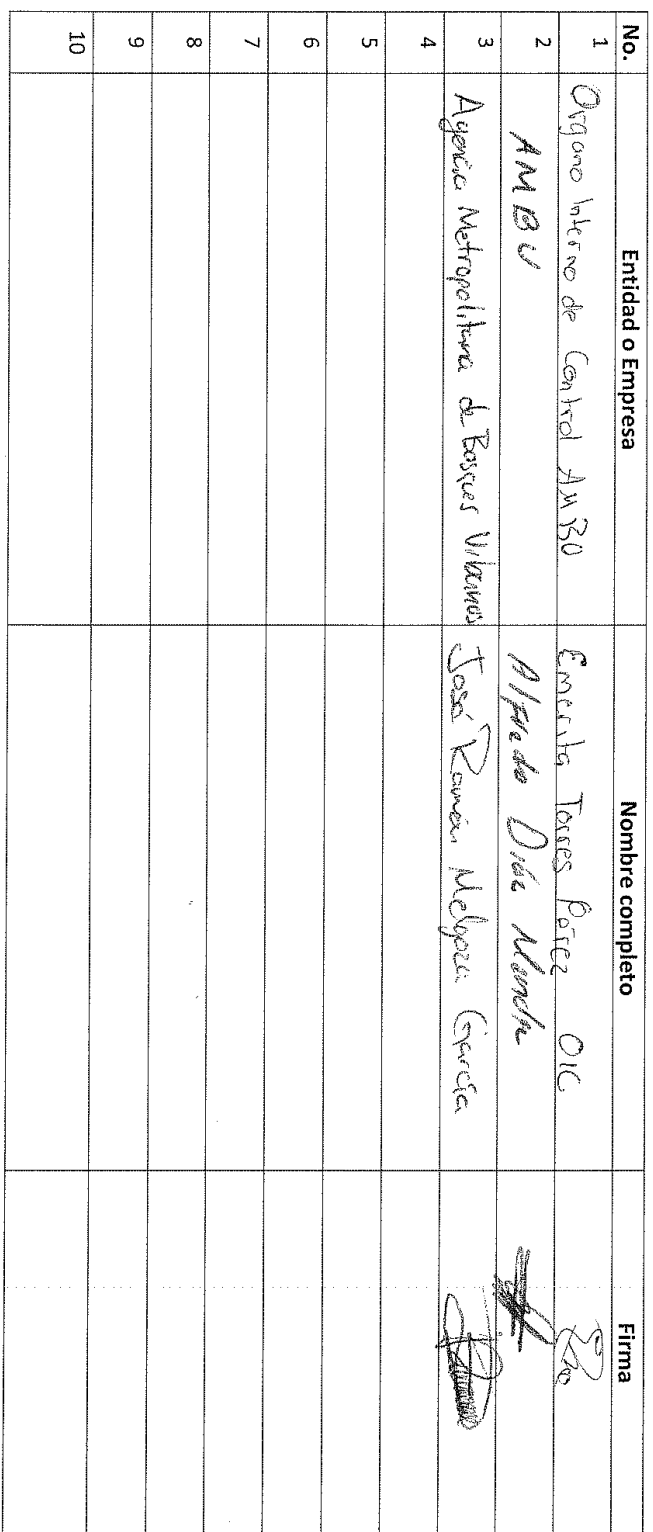 No. Entidad o Empresa Nombre completo Firma
1 Organo Interno de Control AMBU Emerita Torres Pérez OIC
2 AMBU Alfredo Díaz
3 Agencia Metropolitana de Bosques Urbanos José Ramón Melgoza García
4
5
6
7
8
9
10